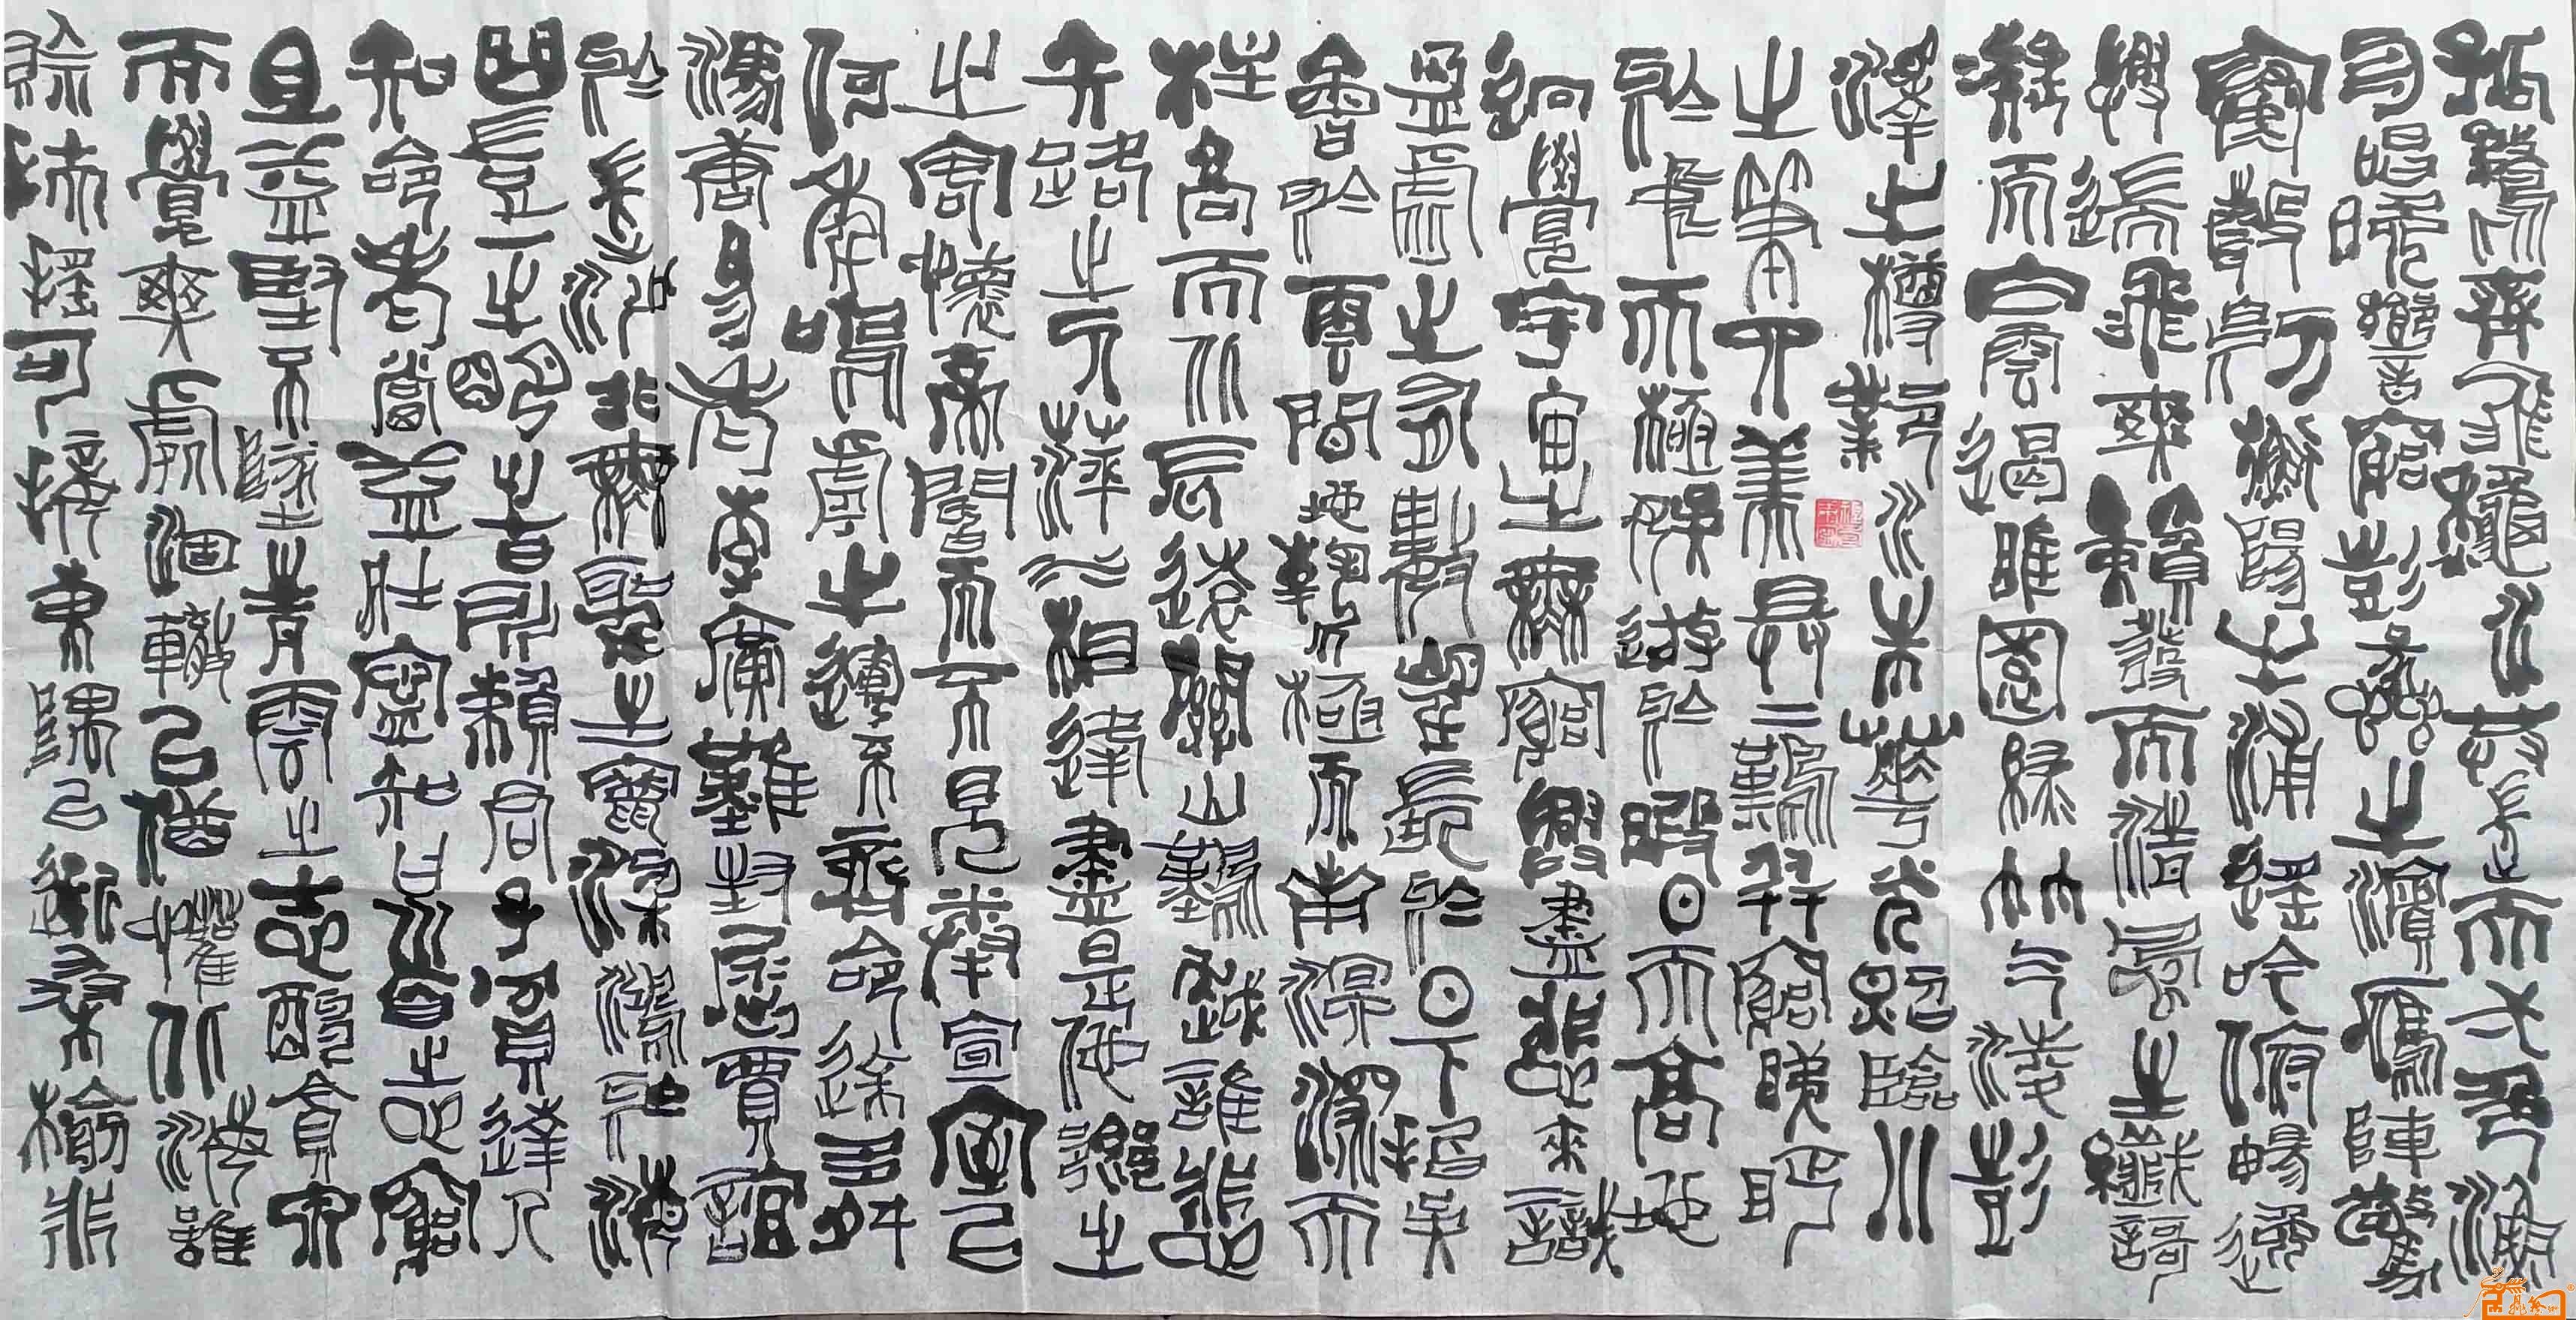 孤鶩齊飛秋水共長天一色漁
舟唱晚響窮彭蠡之濱雁陣驚
寒聲斷衡陽之浦遙吟俯暢逸
興遄飛爽籟發而清風生纖歌
凝而白雲遏睢園綠竹氣凌彭
澤之樽鄴水朱華光照臨川
之筆四美具二難并窮睇眄
於中天極娛遊於暇日天高地
迥覺宇宙之無窮興盡悲來識
盈虛之有數望長安於日下指吳
會於雲間地勢極而南溟深天
柱高而北辰遠關山難越誰悲
失路之人萍水相逢盡是他鄉之
客懷帝閽而不見奉宣室以
何年嗚虖之運不齊命途多舛
馮唐易老李廣難封屈賈誼
於長沙非無聖主竄梁鴻於海
曲豈乏明時所賴君子安貧達人
知命老當益壯寧知白首之心窮
且益堅不墜青雲之志酌貪泉
而覺爽處涸轍以猶懽北海雖
賒扶搖可接東隅已逝桑榆非